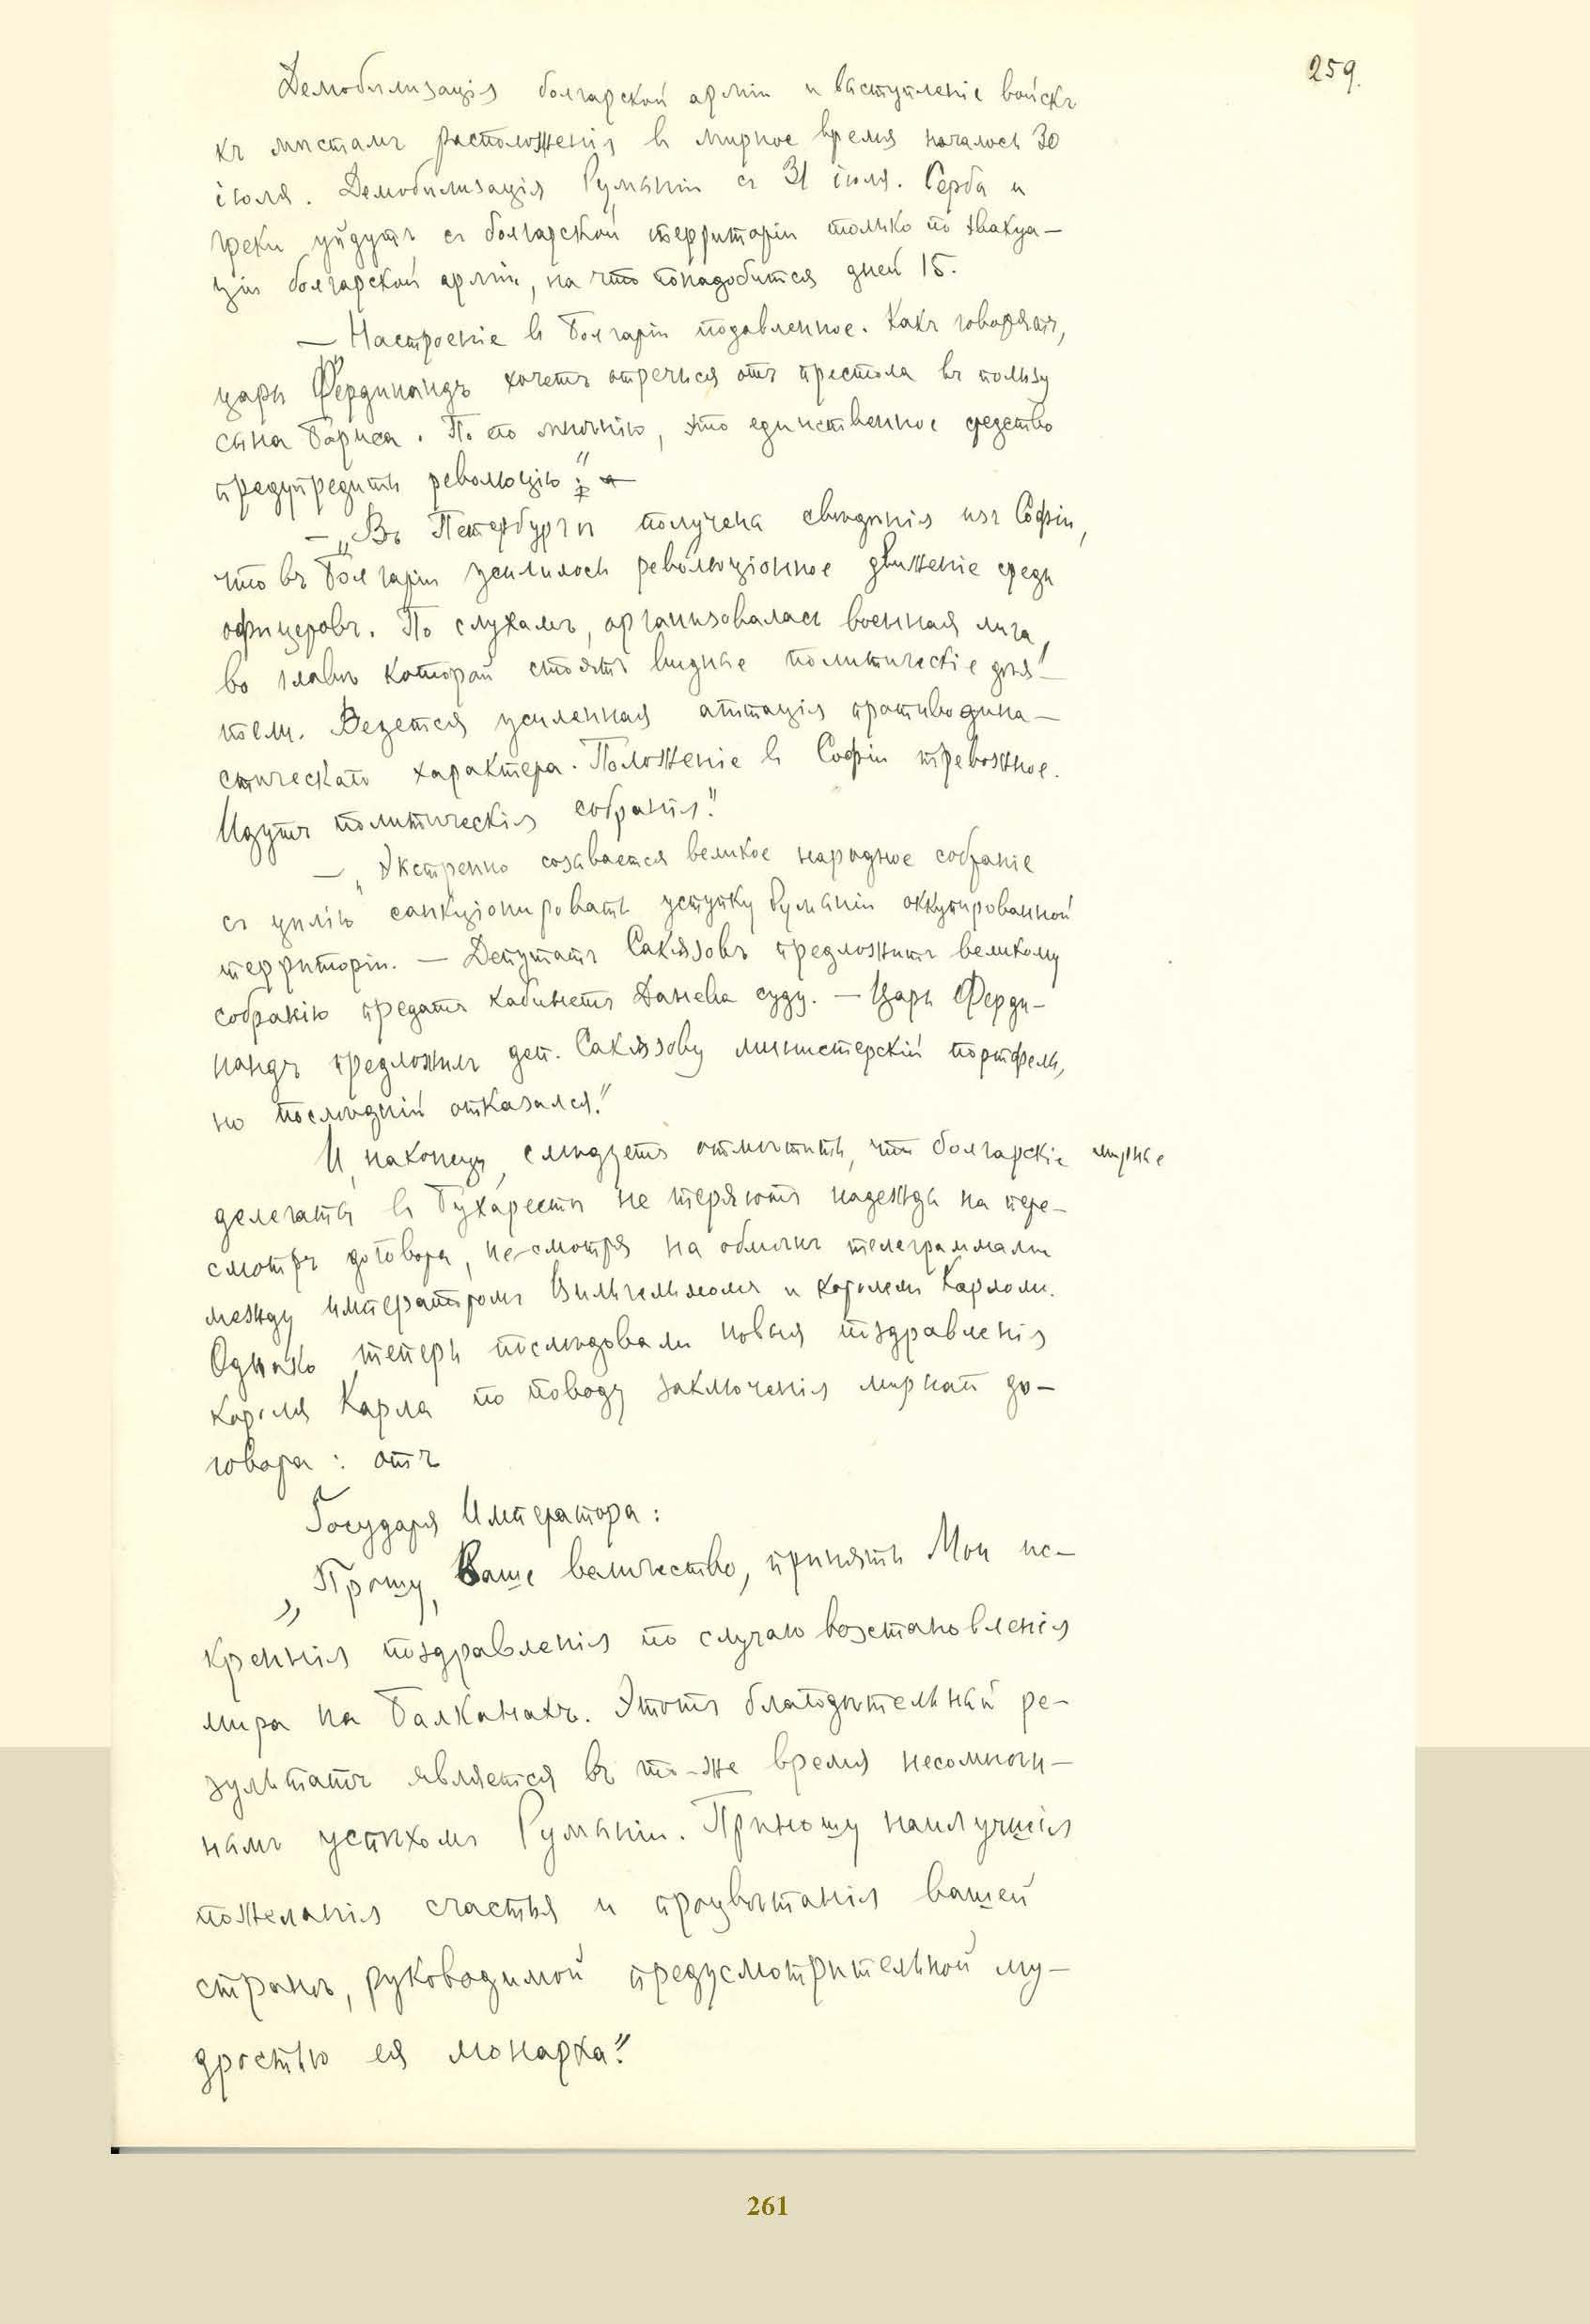 259.
Демобилизація болгарской арміи и выступленіе войскъ
къ мѣстамъ расположенія въ мирное время началось 30
іюля. Демобилизація Румыніи съ 31 іюля. Сербы и
греки уйдутъ съ болгарской территоріи только по эвакуа-
ціи болгарской арміи, на что понадобится дней 15.
— Настроеніе въ Болгаріи подавленное. Какъ говорятъ,
царь Фердинандъ хочетъ отречься отъ престола въ пользу
сына Бориса. По его мнѣнію, это единственное средство
предупредить революцію."
— „Въ Петербургѣ получены свѣдѣнія изъ Софіи,
что въ Болгаріи усилилось революціонное движеніе среди
офицеровъ. По слухамъ, организовалась военная лига,
во главѣ которой стоятъ видные политическіе дѣя-
тели. Ведется усиленная агитація противодина-
стическаго характера. Положеніе въ Софіи тревожное.
Идутъ политическія собранія."
— „Экстренно созывается великое народное собраніе
съ цѣлію санкціонировать уступку Румыніи оккупированной
территоріи. — Депутатъ Сакызовъ предложитъ великому
собранію предать кабинетъ Данева суду. — Царь Ферди-
нандъ предложилъ деп. Сакызову министерскій портфель,
но послѣдній отказался."
И, наконецъ, слѣдуетъ отмѣтить, что болгарскіе мирные
делегаты въ Бухарестѣ не теряютъ надежды на пере-
смотръ договора, не смотря на обмѣнъ телеграммами
между императоромъ Вильгельмомъ и королемъ Карломъ.
Однако теперь послѣдовали новыя поздравленія
короля Карла по поводу заключенія мирнаго до-
говора: отъ
Государя Императора:
„Прошу, Ваше величество, принять Мои ис-
креннія поздравленія по случаю возстановленія
мира на Балканахъ. Этотъ благодѣтельный ре-
зультатъ является въ то-же время несомнѣн-
нымъ успѣхомъ Румыніи. Приношу наилучшія
пожеланія счастья и процвѣтанія вашей
странѣ, руководимой предусмотрительной му-
дростью ея монарха."
261